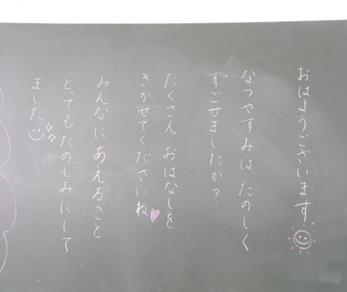 おはようございます
なつやすみは たのしく
すごせましたか？
たくさん おはなしを
きかせてくださいね
みんなに あえること
とってもたのしみにして
ました